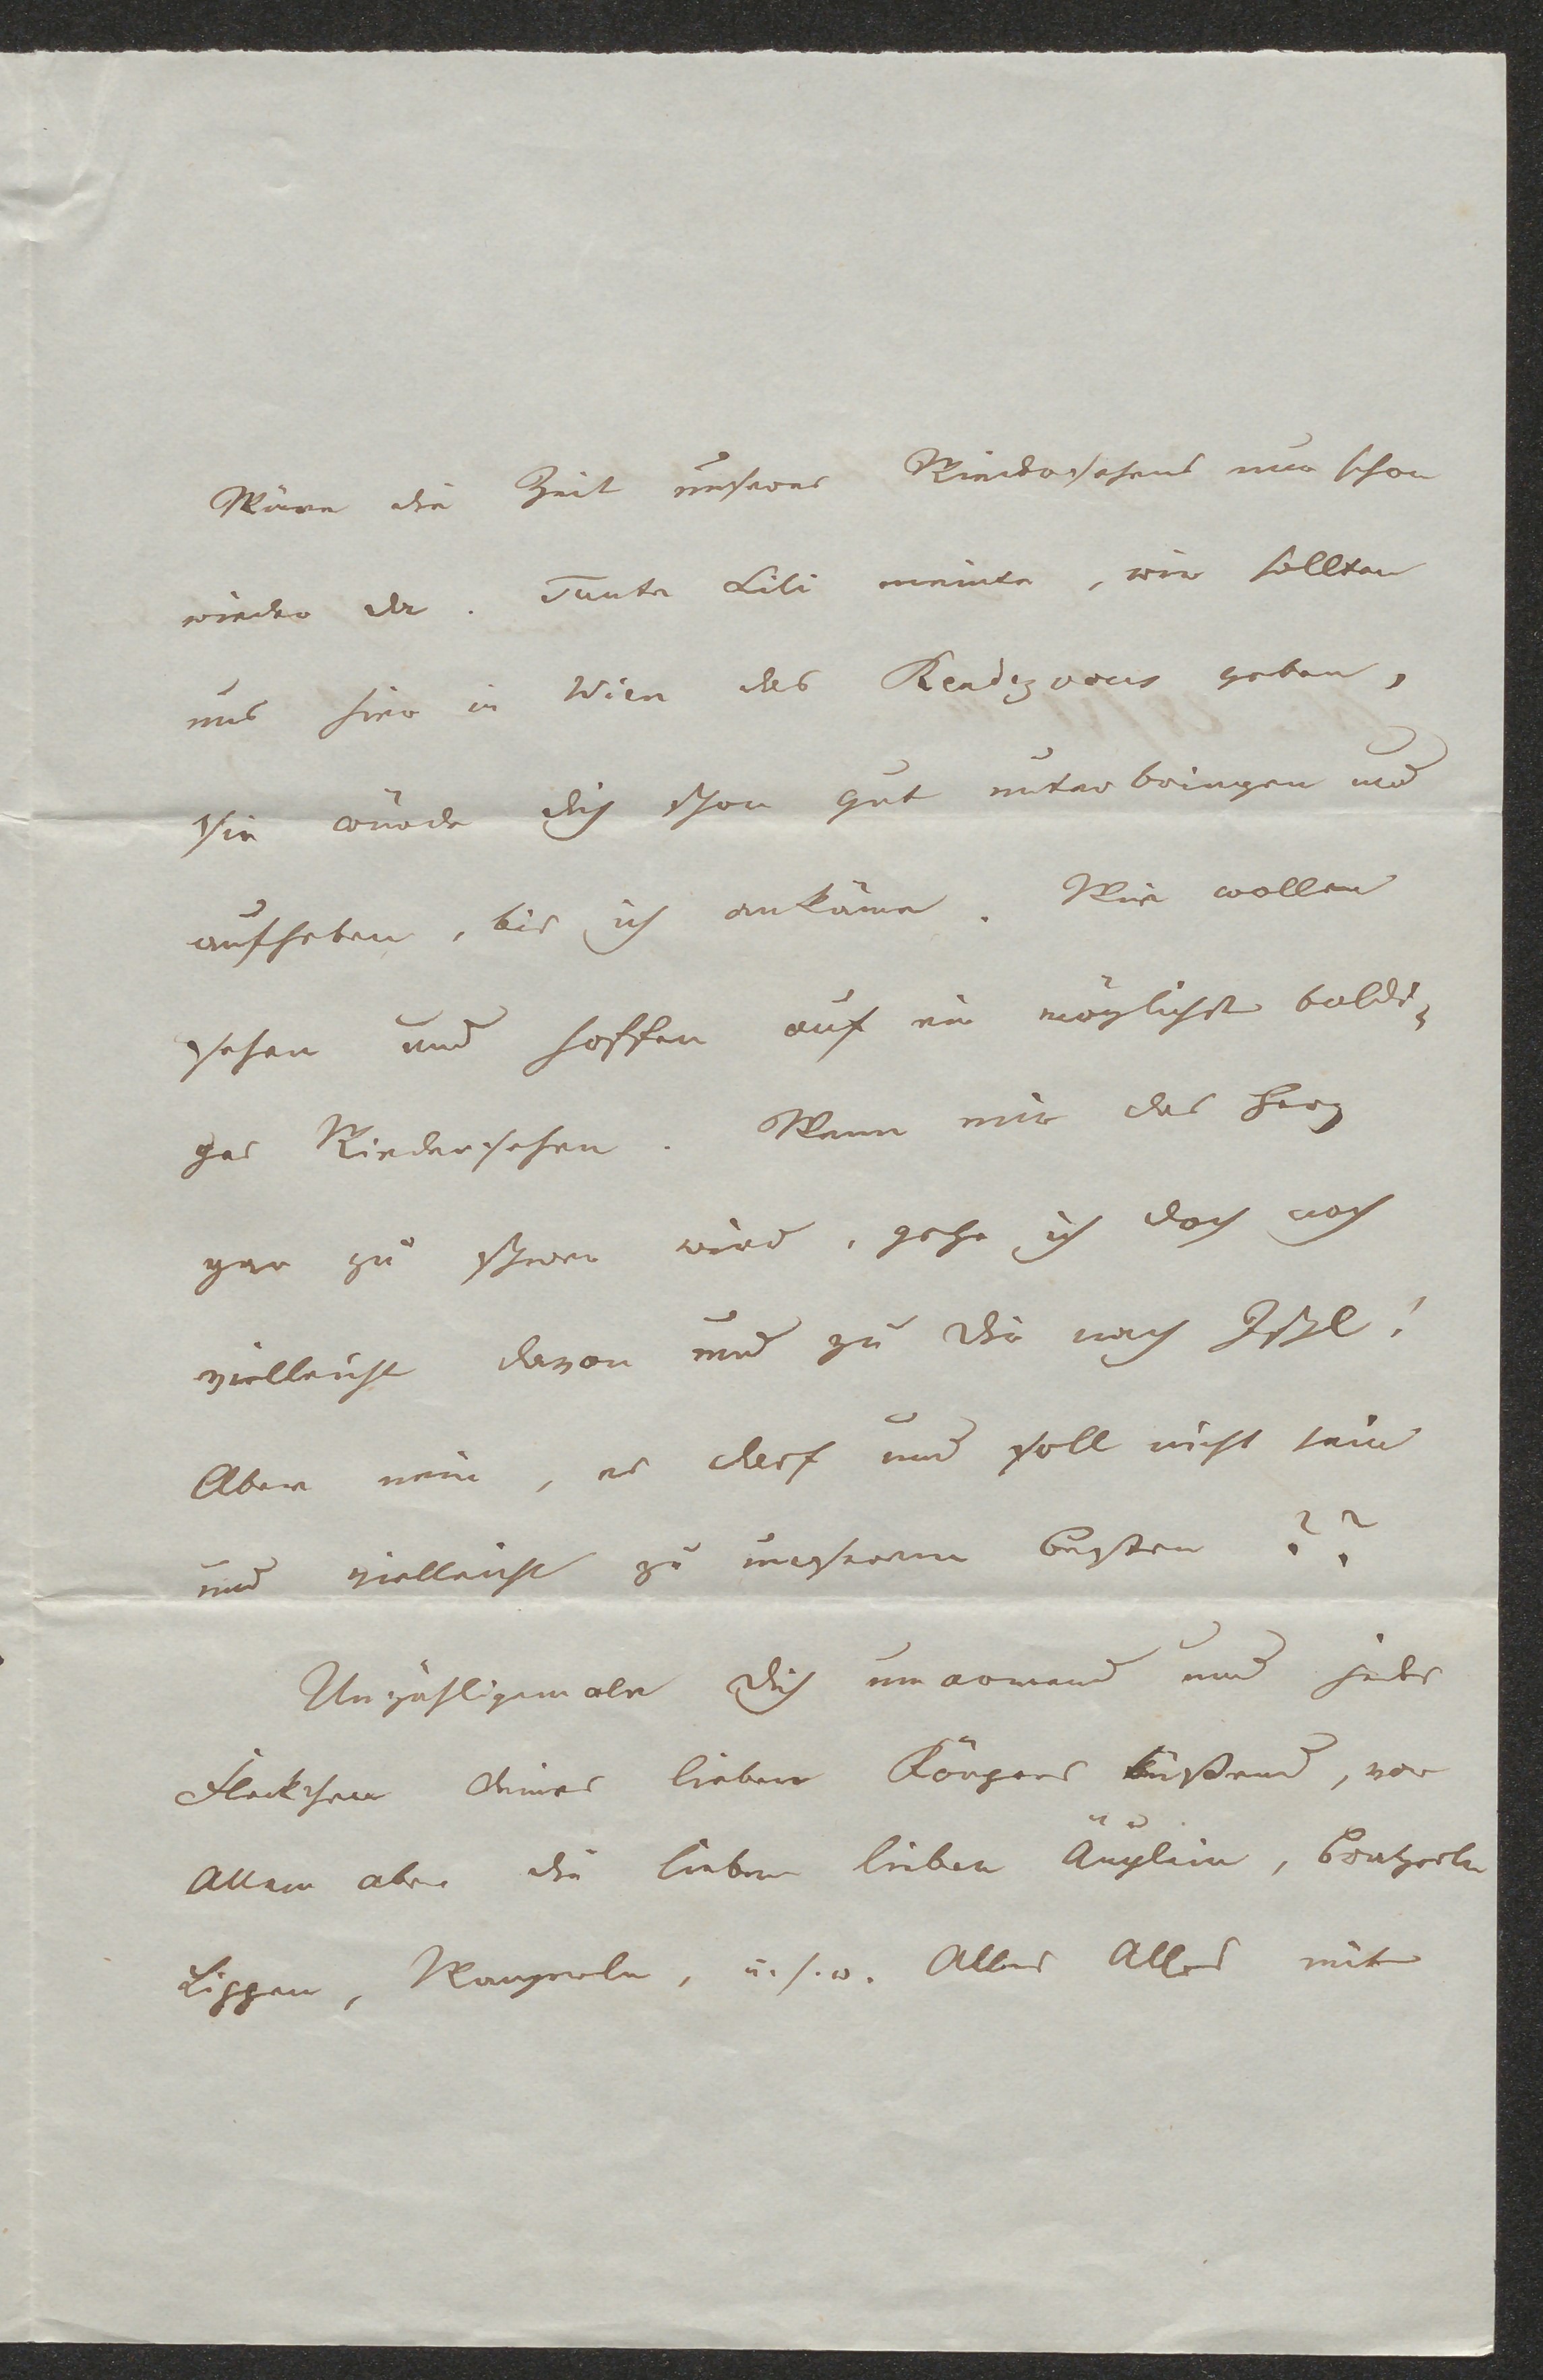 Wäre die Zeit unseres Wiedersehens nur schon
wieder da. Tante Lili meinte, wir sollten
uns hier in Wien das Rendezvous geben,
sie würde dich schon gut unterbringen und
aufheben, bis ich ankäme. Wir wollen
sehen und hoffen auf ein möglichst baldi-
ges Wiedersehen. Wenn mir das Herz
gar zu schwer wird, gehe ich doch noch
vielleicht davon und zu Dir nach Ischl!
Aber nein, es darf und soll nicht sein
und vielleicht zu unserem besten??
Unzähligemale Dich umarmend und jedes
Fleckchen deines lieben Körpers küßend, vor
Allem aber die lieben lieben Äuglein, Bratzerln
Lippen, Wangerln, u.s.w. Alles Alles mit